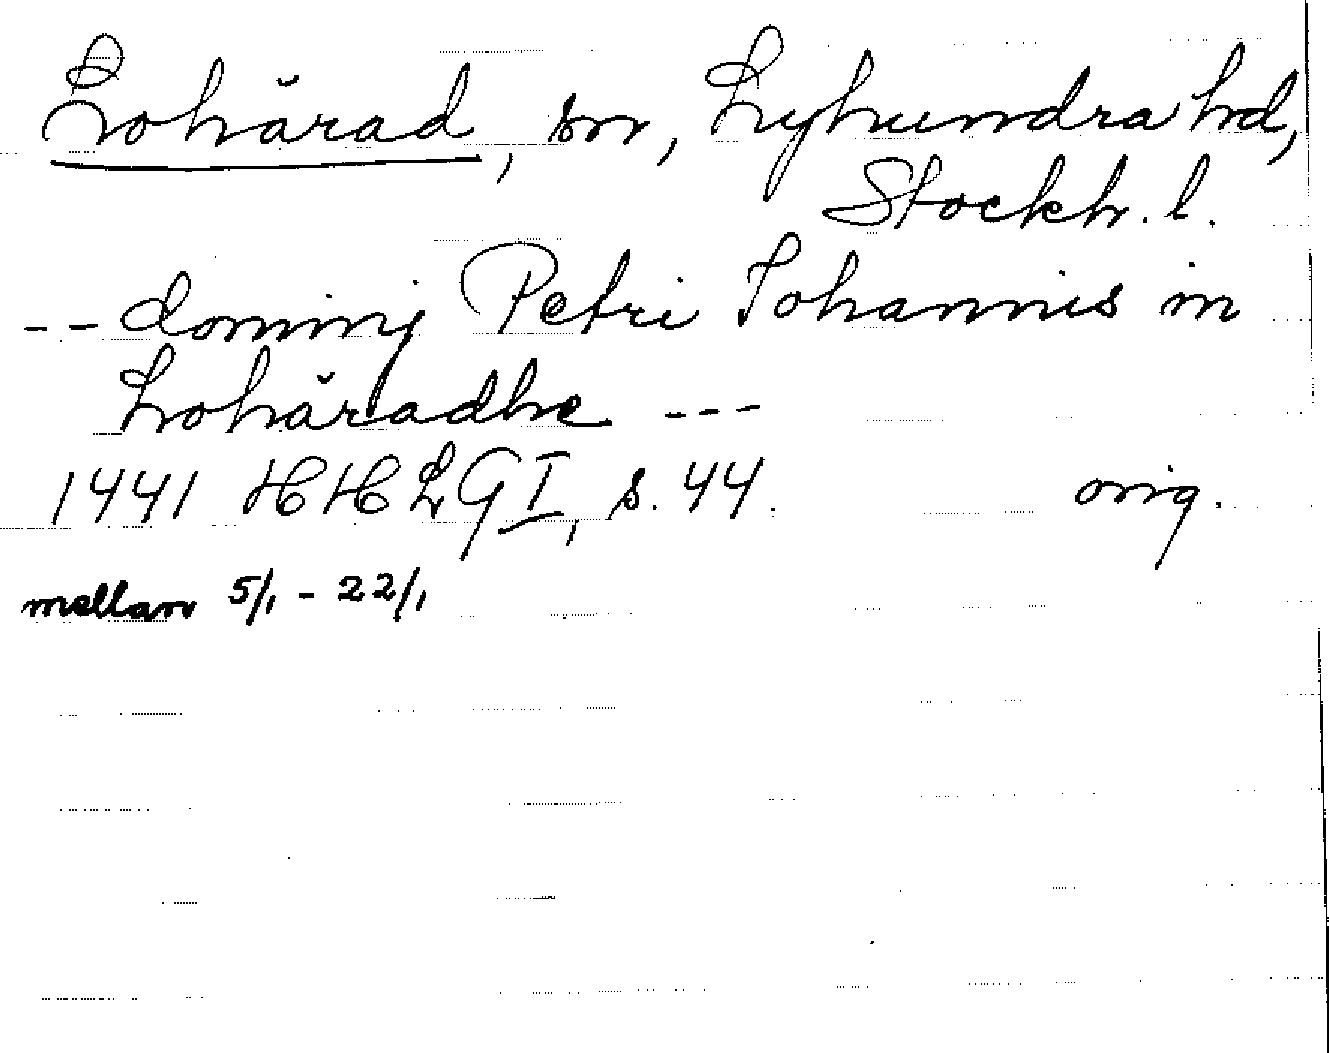 Lohärad, sn, Lyhundra hd,
Stockh. l.
-- dominj Petri Johannis in
Lohäradhe ---
1441 HHLGI, s. 44. orig.
mellan 5/1 - 22/1